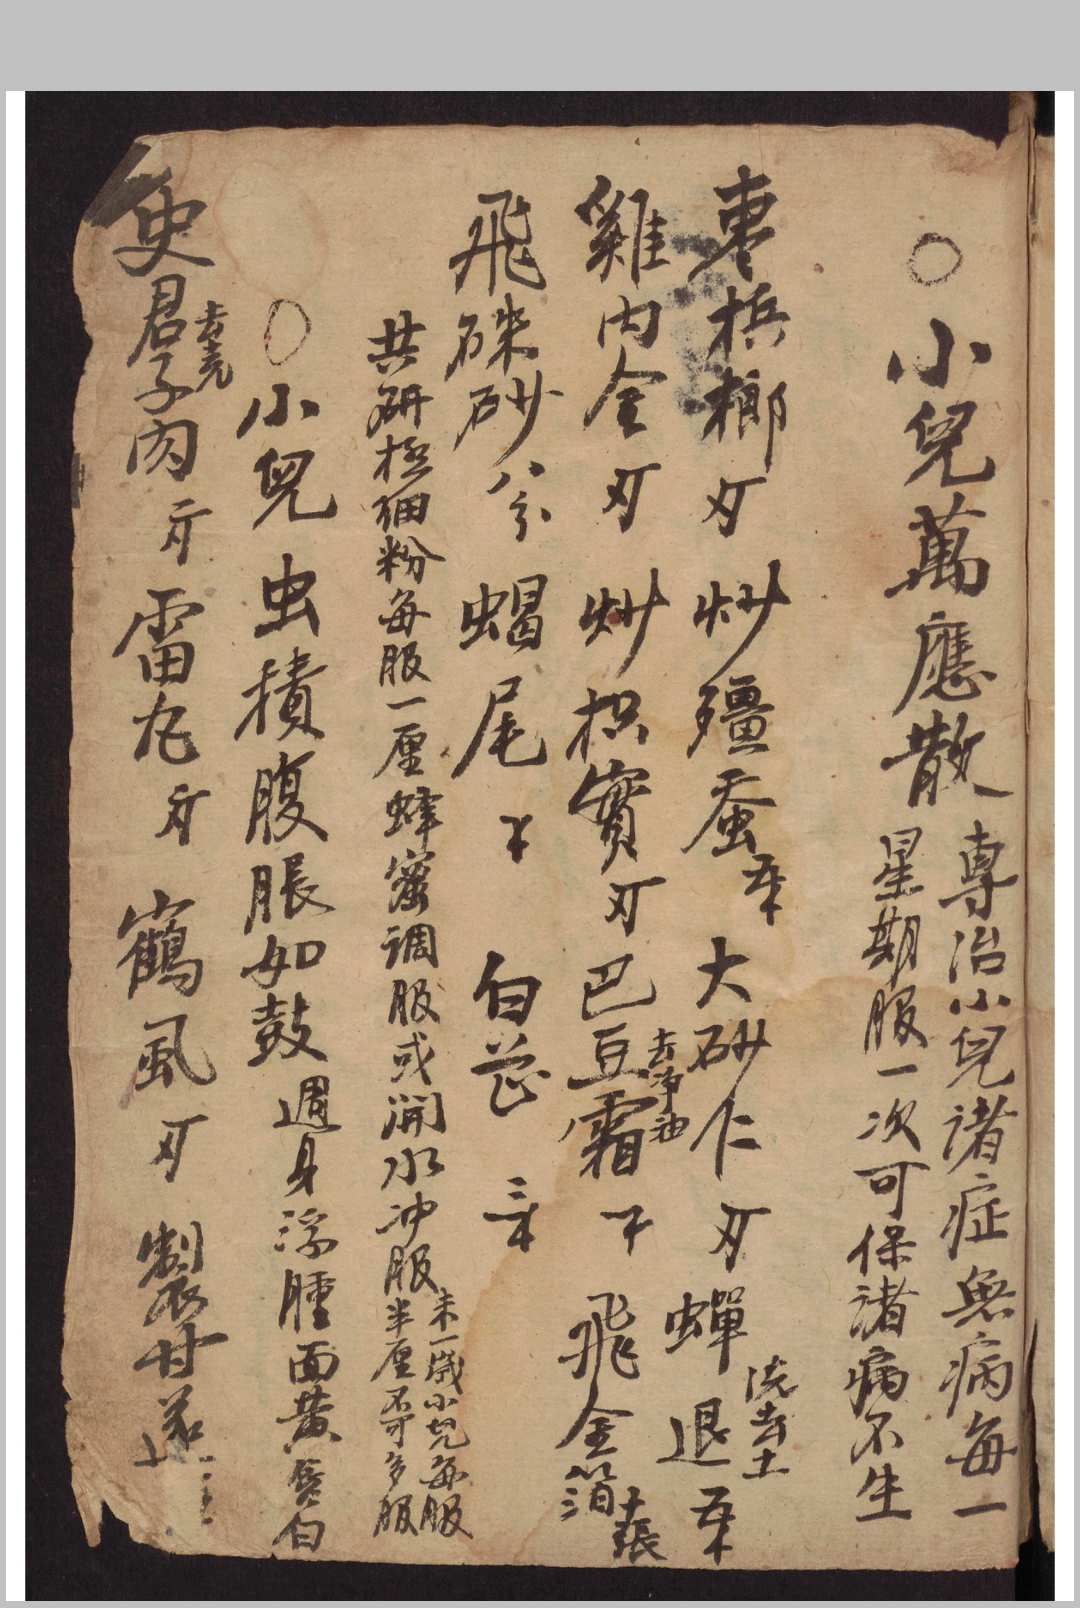 ○小兒萬應散
專治小兒諸症無病每一
星期服一次可保諸病不生
枣梹榔刄 炒殭蚕 大砂仁刄 蟬退
洗去土
雞内金刄 炒枳實刄 巴豆霜 飛金箔
去净油
十張
飛硃砂 八分 蝎尾 白芷
共研極细粉每服一厘蜂蜜调服或開水冲服
未一歲小兒每服
半厘不可多服
○小兒虫積腹脹如鼓
週身浮腫面黄
白
使君子肉 雷丸 鶴虱刄 製甘遂
去壳